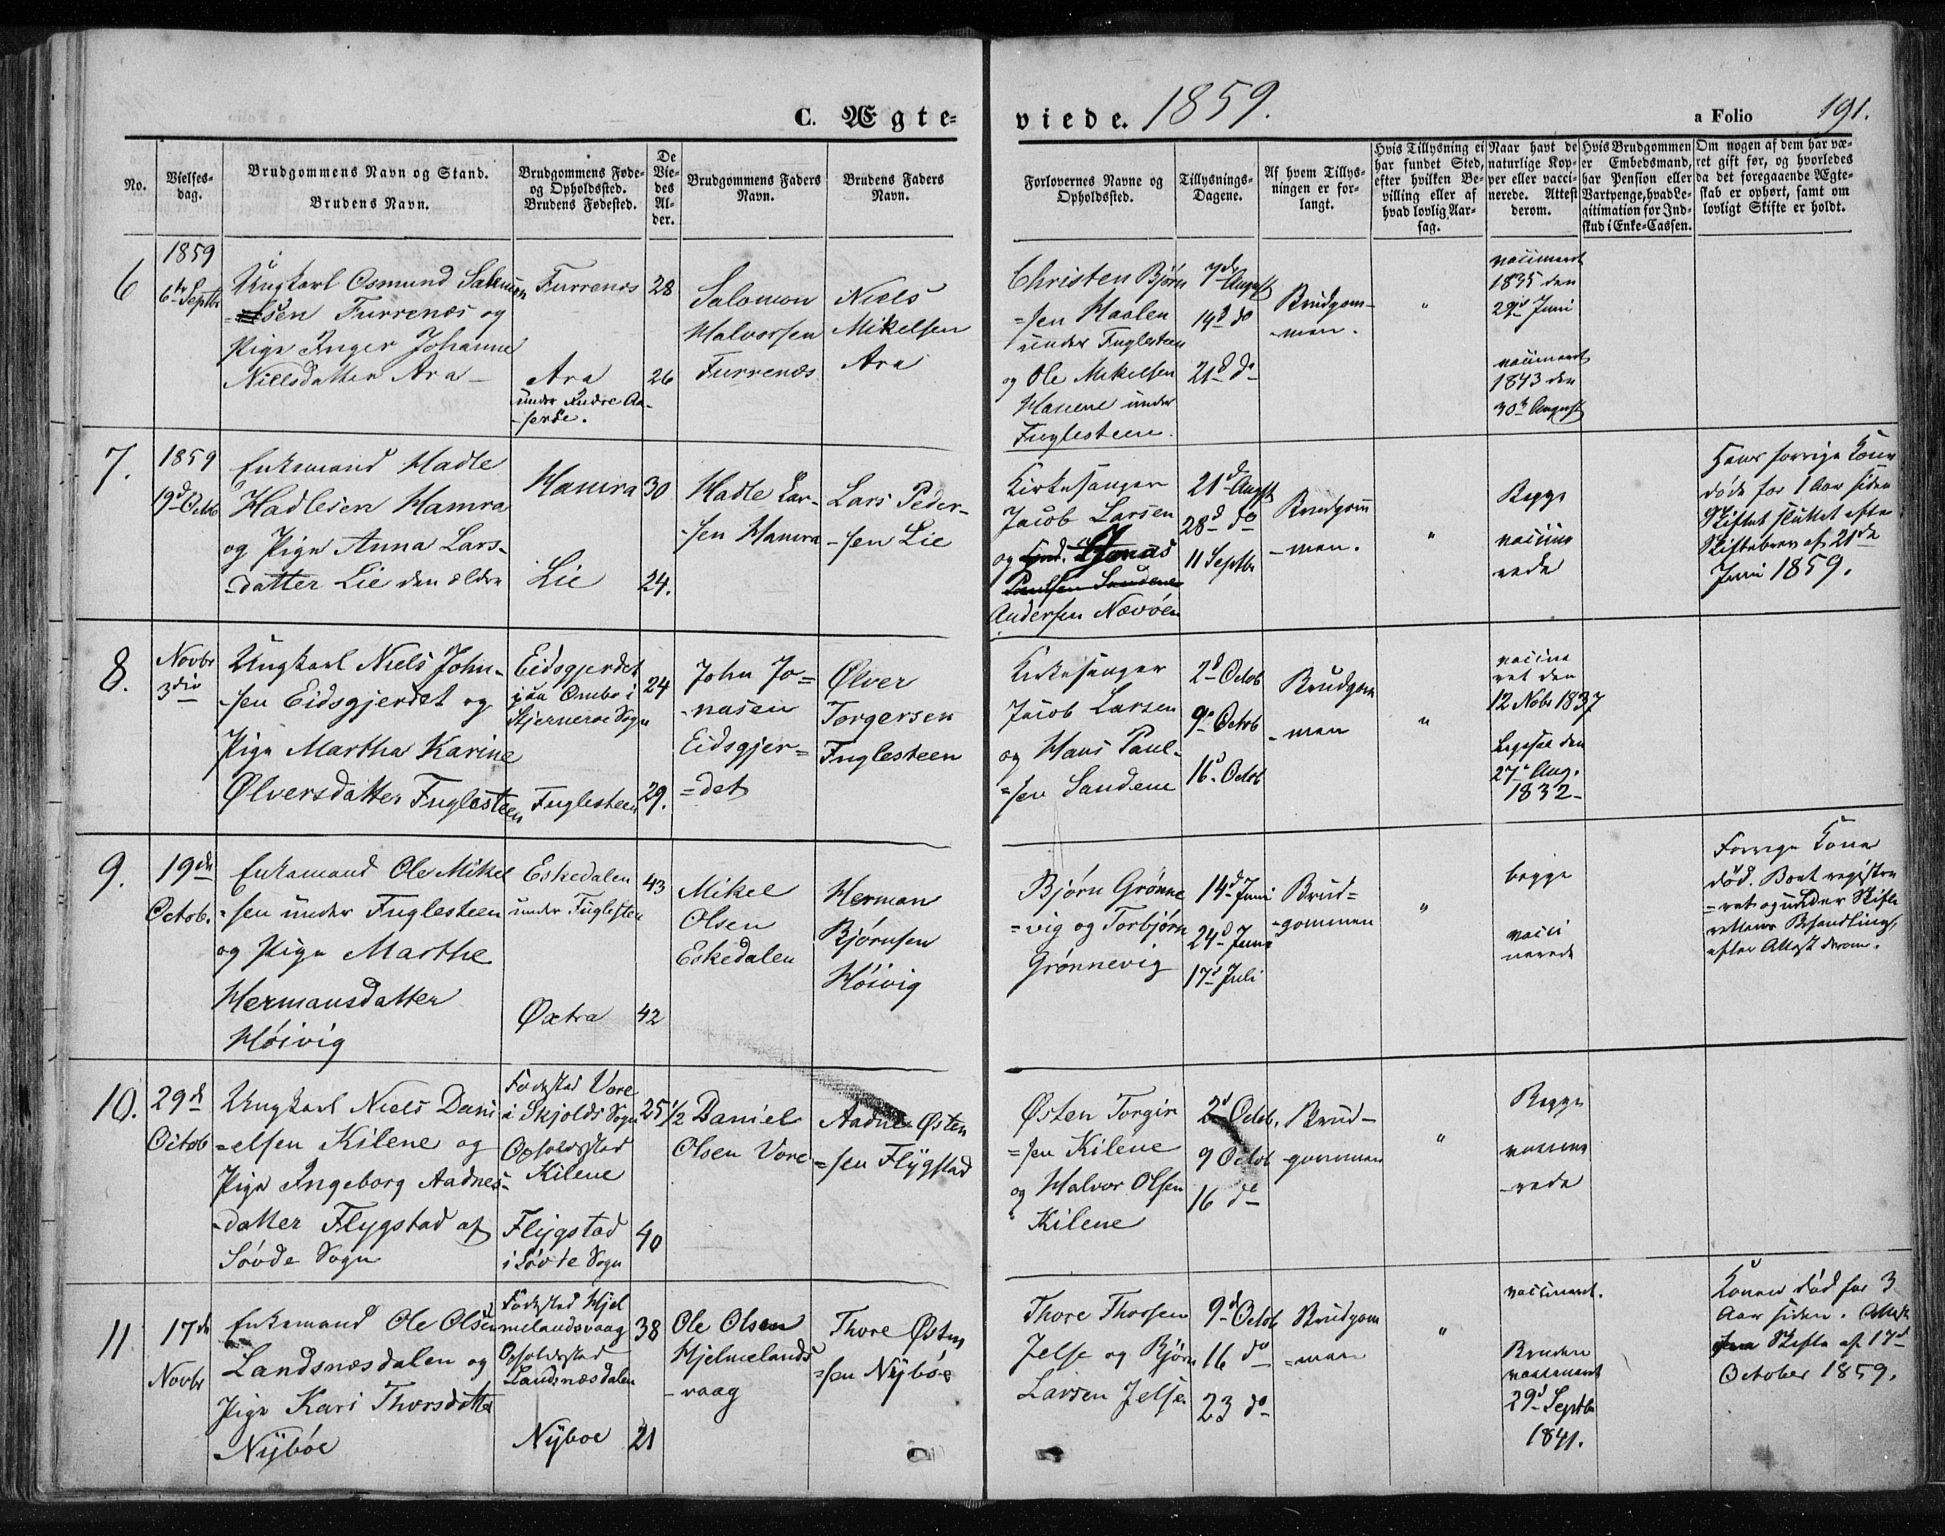 C. Ægte-
viede. 1859.
a Folio 191.
No.
Vielses-
dag.
Brudgommens Navn og Stand.
Brudens Navn.
Brudgommens Føde-
og Opholdssted.
Brudens Fødested.
De
Vie-
des
Al-
der.
Brudgommens Faders
Navn.
Brudens Faders
Navn.
Forlovernes Navne og
Opholdssted.
Tillysnings-
Dagene.
Af hvem Tillys-
ningen er for-
langt.
Hvis Tillysning ei
har fundet Sted,
efter hvilken Be-
villing eller af
hvad lovlig Aar-
sag.
Naar havt de
naturlige Kop-
per eller vacci-
nerede. Attest
derom.
Hvis Brudgommen
er Embedsmand,
har Pension eller
Vartpenge, hvad Le-
gitimation for Ind-
skud i Enke-Cassen.
Om nogen af dem har væ-
ret gift før, og hvorledes
da det foregaaende Ægte-
skab er ophørt, samt om
lovligt Skifte er holdt.
6
1859
6te Septbr
Ungkarl Osmund Salomon
=sen Furrenæs og
Pige Inger Johanne
Nielsdatter Ara
Furrenæs
Ara
under Indre Aa-
-serde.
28
26
Salomon
Halvorsen
Furrenæs
Niels
Mikelsen
Ara
Christen Bjørn
=sen Haalen
under Fuglesteen
og Ole Mikelsen
Hauene under
Fuglesteen.
7de August
14d do
21d do
Brudgom-
-men.
"
vaccineret
1835 den
29d Juni
vaccineret
1843 den
30te August
7.
1859
19d Octob
Enkemand Hadle
Hadlesen Hamra
og Pige Anna Lars-
-datter Lie den ældre
Hamra
Lie
30
24.
Hadle Lar-
-sen Hamra
Lars Peder-
-sen Lie
Kirkesanger
Jacob Larsen
og Jonas
Paulsen Sandene
Andersen Nævøen
21d Augst
28d do
11 Septbr
Brudgom
-men.
"
Begge
vaccine
rede
Hans forrige Kone
døde for 1 Aar siden
Skiftet sluttet efter
Skiftebrev af 21de
Juni 1859.
8.
Novbr
3die
Ungkarl Niels John-
-sen Eidsgjerdet og
Pige Martha Karine
Ølversdatter Fuglesteen
Eidsgjerdet
paa Ombo i
Stjerneroe Sogn
Fuglesteen
24
29.
John Jo=
-nasen
Eidsgjer=
=det
Ølver
Torgersen
Fuglesteen
Kirkesanger
Jacob Larsen
og Hans Paul-
=sen Sandene
2d Octob
9d Octob
16d Octob
Brudgom
-men
"
vaccine
ret den
12 Nobr 1837
Ligesaa den
27d Aug.
1832-
9.
19de
Octob.
Enkemand Ole Mikel
=sen under Fuglesteen
og Pige Marthe
Hermansdatter
Høivig
Eskedalen
under Fuglesten
Øxtra
43
42
Mikel
Olsen
Eskedalen
Herman
Bjørnsen
Høivig
Bjørn Grønne
=vig og Torbjørn
Grønnevig
14d Juni
24d Juni
17d Juli
Brud=
-gommen
"
begge
vacci
nerede
Forrige Kone
død. Boet registre
=ret og under Skifte
rettens Behandling,
efter Attest derom.
10.
29d
Octob
Ungkarl Niels Dani
=elsen Kilene og
Pige Ingeborg Aadnes-
-datter Flygstad af
Søvde Sogn
Fødested Vore
i Skjolds Sogn
Opholdsstad
Kilene
Flygstad
i Søvde Sogn
25 1/2
40
Daniel
Olsen Vore
Aadne Østen
=sen Flygstad
Østen Torgir
=sen Kilene
og Halvor Olsen
Kilene
2d Octob.
9 Octob
16 do
Brud-
-gommen
"
Begge
vaccine
-rede
11
17de
Novbr
Enkemand Ole Olsen
Landsnæsdalen og
Pige Kari Thorsdatter
Nybøe
Fødested Hjel
melandsvaag
Opholdsstad
Landsnæsdalen
Nyboe
38
21
Ole Olsen
Hjelmelands
-vaag
Thore Østen
=sen Nybøe
Thore Thorsen
Jelse og Bjørn
Larsen Jelse
9d Octob
16 do
23 do
Brudgom
=men
"
vaccineret.
Bruden
vaccineret
29d Septbr
1841.
Konen død for 3
Aar siden. Attest
Skifte af 17d
October 1859.